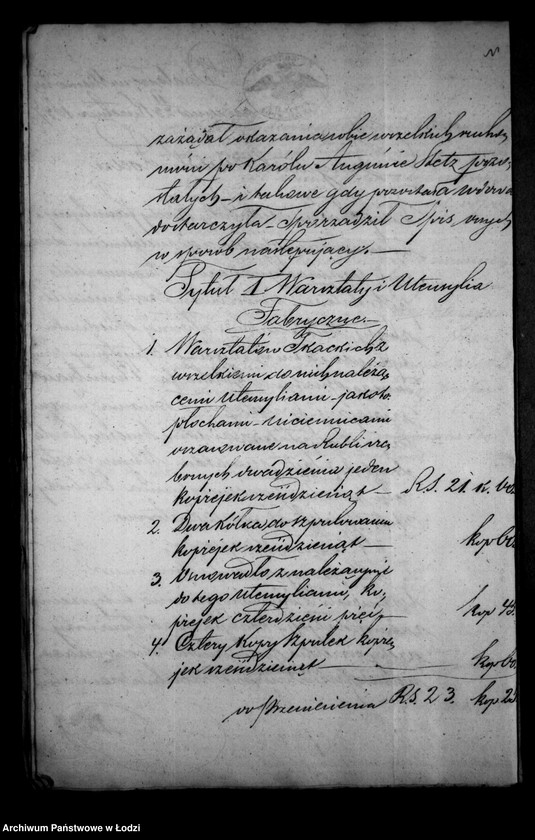 zażądał okazania sobie wszelkich rucho
mości po Karólu Auguście Stetz pozo-
stałych – i takowe gdy pozostała wdowa
dostarczyła – sporządził Spis onych
w sposób następujący. —
Tytuł I Warsztaty i Utensylia
Fabryczne —
1. Warsztatów Tkackich 2
wszelkiemi do nich należą-
cemi Utensyliami – jakoto
płochami – nicienicami
oszacowane na Rubli sre-
brnych dwadzieścia jeden
kopiejek sześćdziesiąt — R.S. 21. k. 60
2. Dwa kółka do szpulowania
kopiejek sześćdziesiąt — kop 60
3. Snowadło z należącymi
do tego Utensyliami, ko-
piejek czterdzieści pięć, kop 45
4. Cztery kopy szpulek kopie-
jek sześćdziesiąt — kop 60
do przeniesienia R.S. 23. kop 25
Archiwum Państwowe w Łodzi